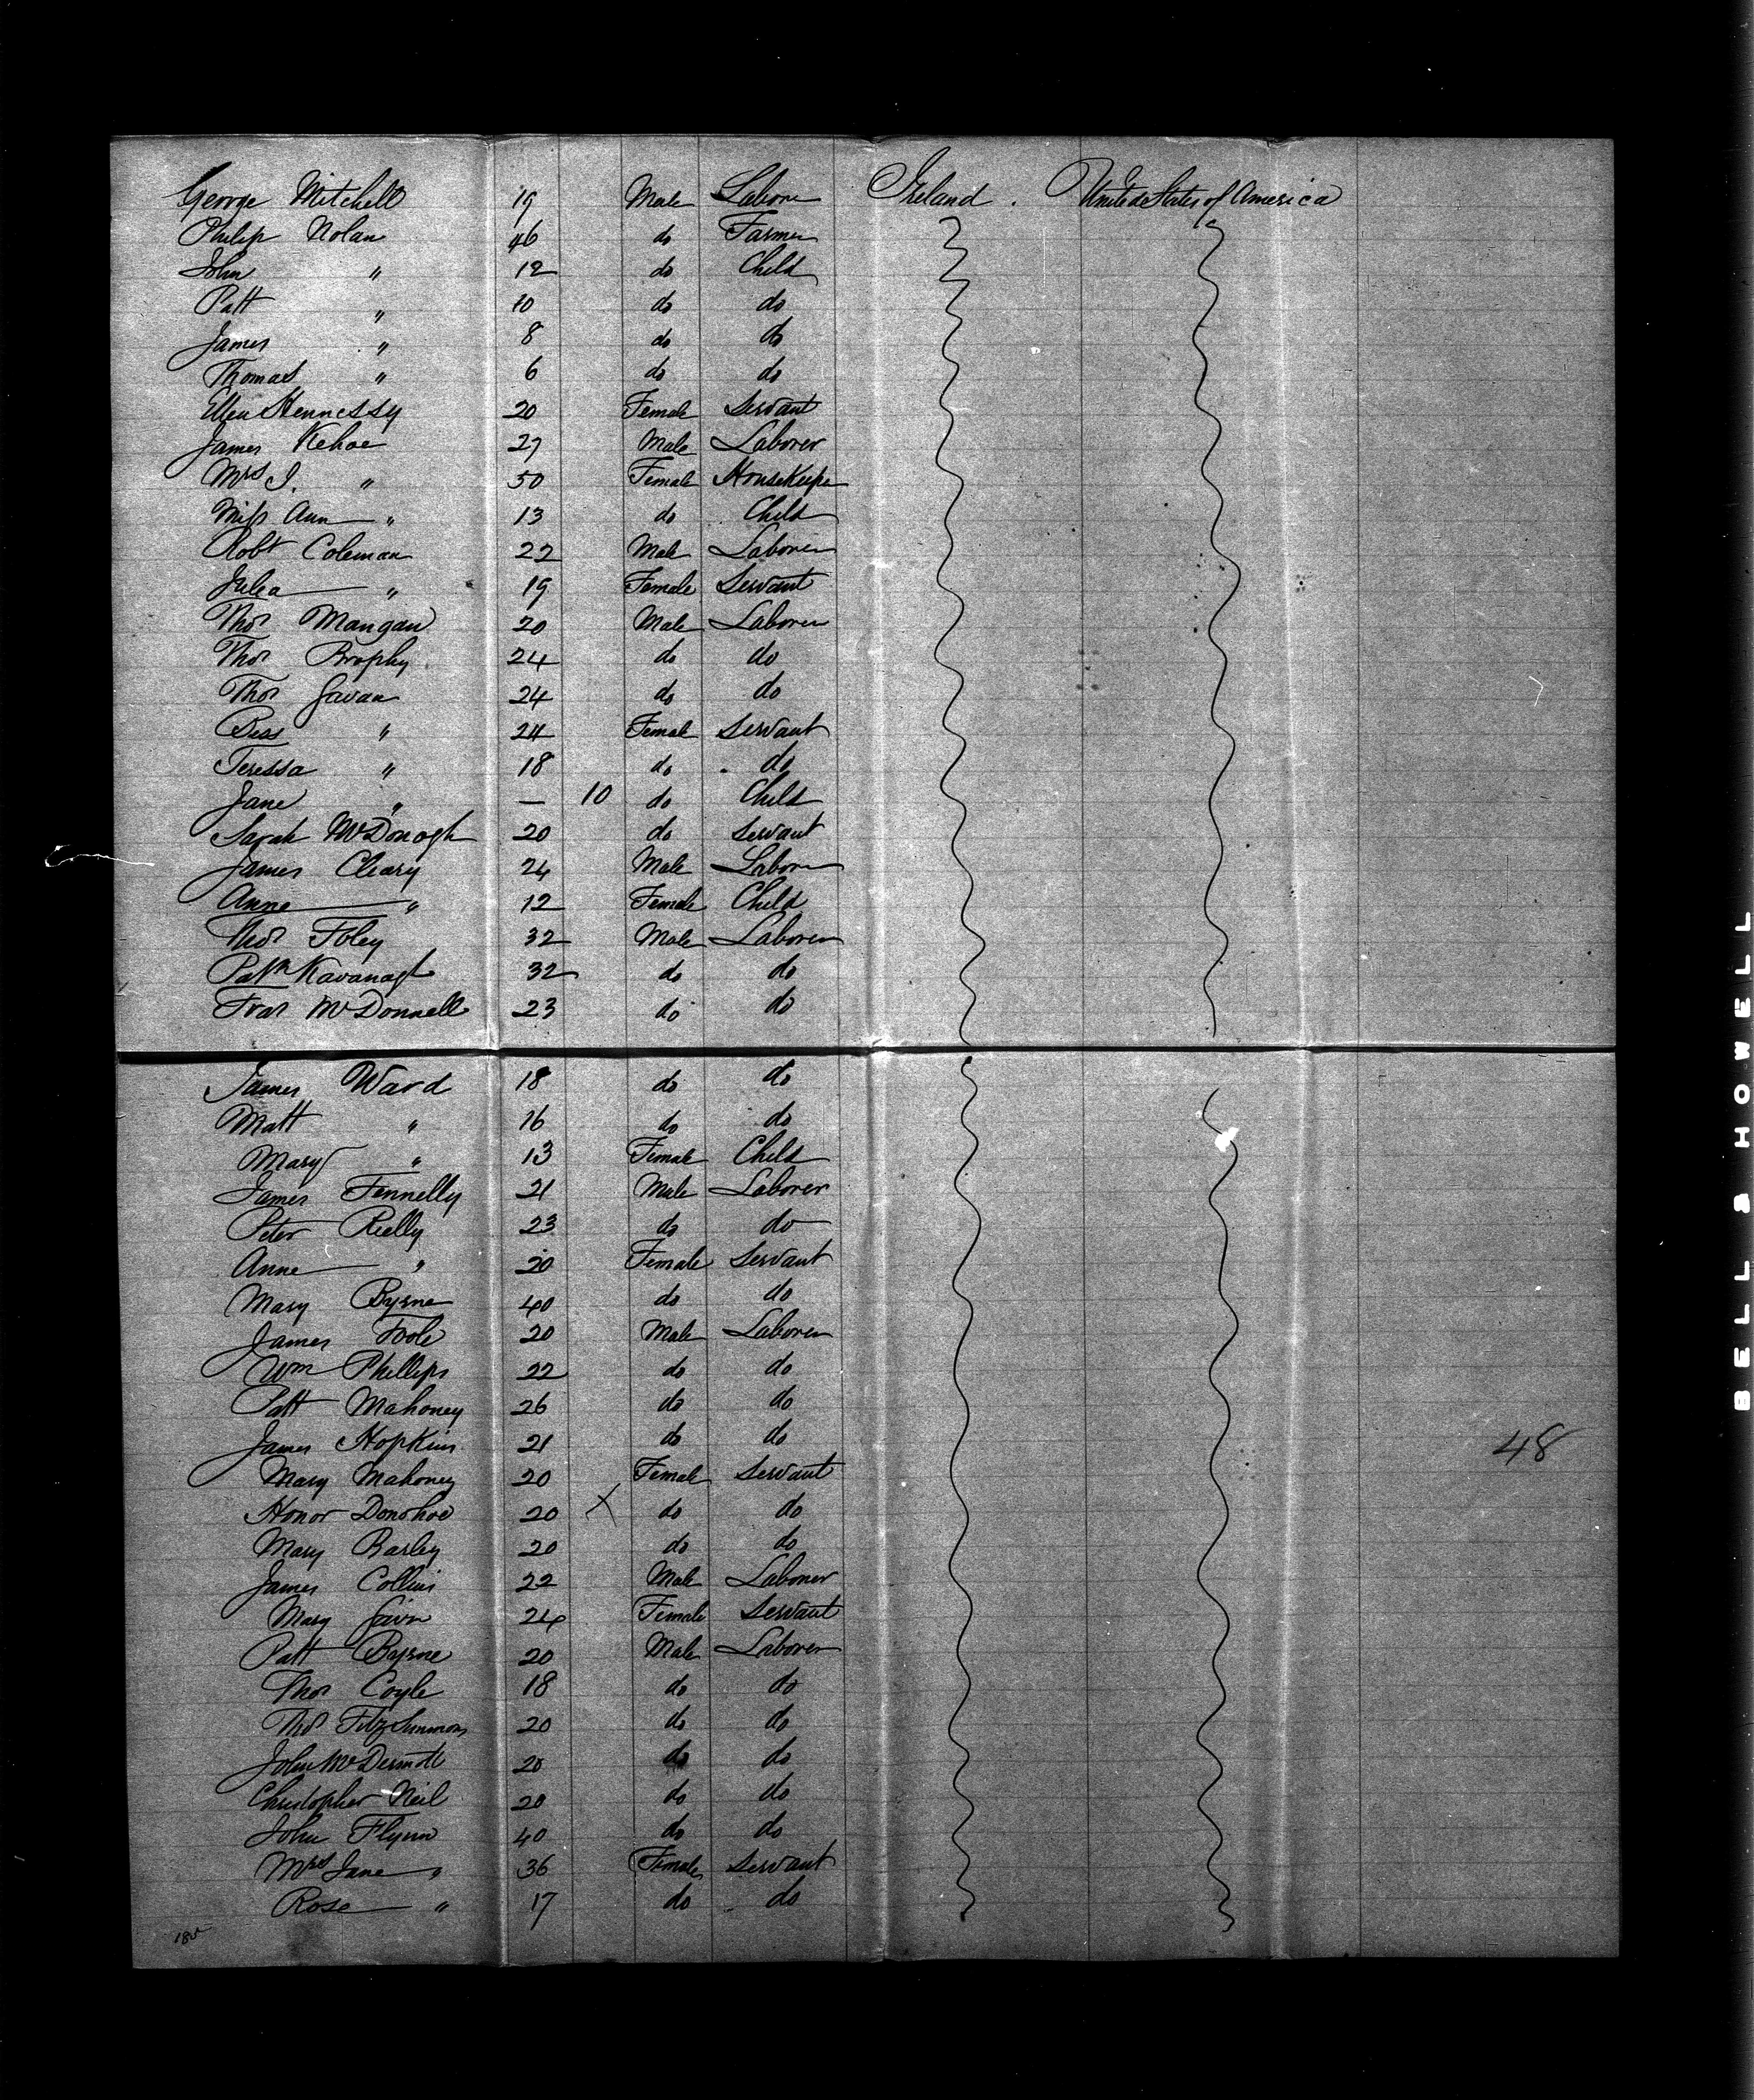 George Mitchell 19 Male Laborer Ireland . United States of America
Philip Nolan 46 do Farmer
John " 12 do Child
Patt " 10 do do
James " 8 do do
Thomas " 6 do do
Ellen Hennessy 20 Female Servant
James Kehoe 27 Male Laborer
Mrs J. " 50 Female Housekeeper
Miss Ann " 13 do Child
Robt Coleman 22 Male Laborer
Julia " 19 Female Servant
Thos Mangan 20 Male Laborer
Thos Brophy 24 do do
Thos Gavan 24 do do
Bess " 24 Female Servant
Teressa " 18 do do
Jane " — 10 do Child
Sarah McDonogh 20 do Servant
James Cleary 24 Male Laborer
Anne " 12 Female Child
Thos Foley 32 Male Laborer
Patk Kavanagh 32 do do
Fras McDonnell 23 do do
James Ward 18 do do
Matt " 16 do do
Mary " 13 Female Child
James Fennelly 21 Male Laborer
Peter Rielly 23 do do
Anne " 20 Female Servant
Mary Byrne 40 do do
James Toole 20 Male Laborer
Wm Phillips 22 do do
Patt Mahoney 26 do do
James Hopkins 21 do do
Mary Mahoney 20 Female Servant
Honor Donohoe 20 X do do
Mary Barley 20 do do
James Collins 22 Male Laborer
Mary 24 Female Servant
Patt Byrne 20 Male Laborer
Thos Coyle 18 do do
Thos FitzSimmons 20 do do
John McDermott 20 do do
Christopher Neil 20 do do
John Flynn 40 do do
Mrs Jane " 36 Female Servant
Rose " 17 do do
48
185
BELL & HOWELL